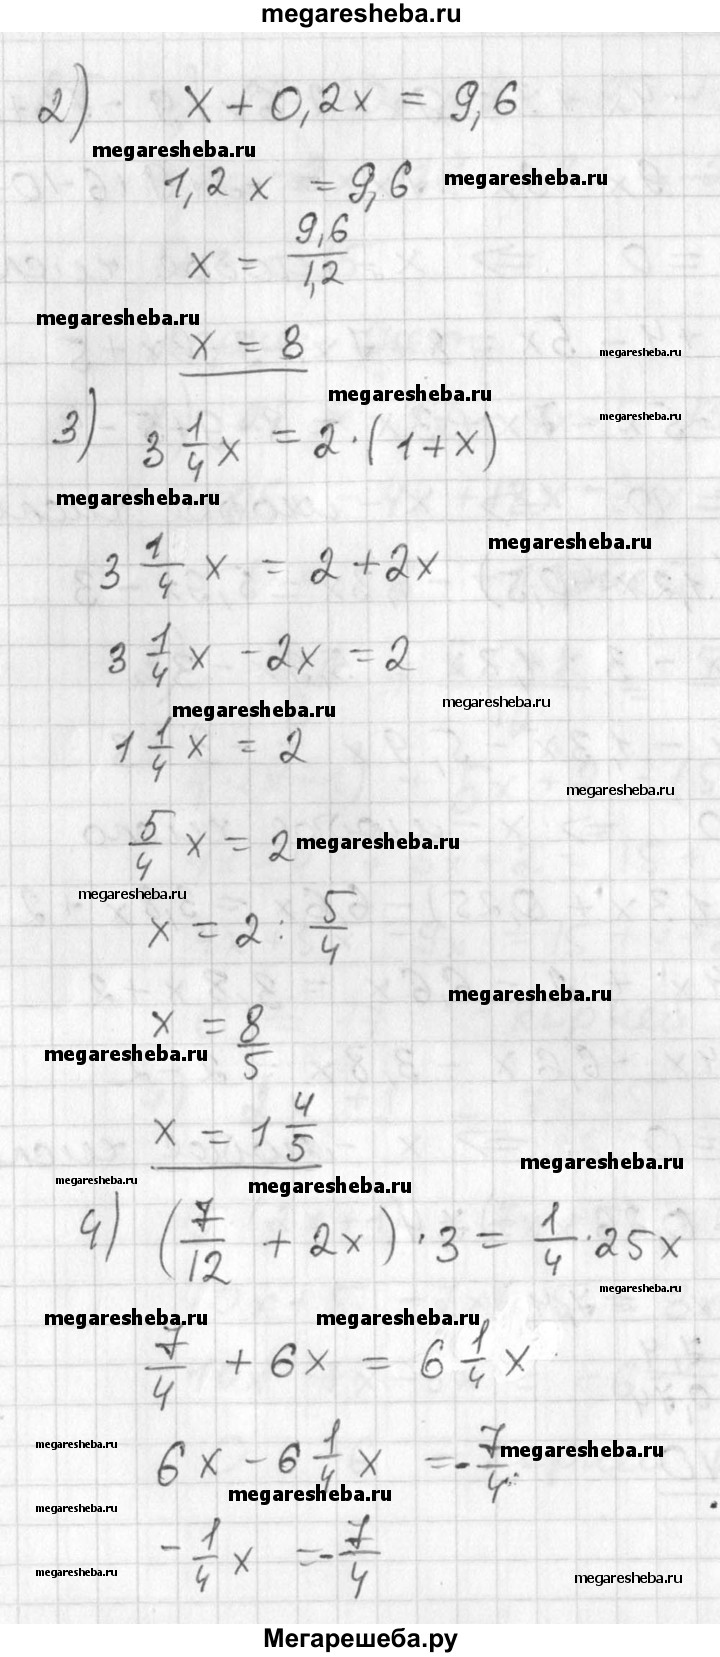 megaresheba.ru
2) x + 0,2x = 9,6
megaresheba.ru
1,2x = 9,6 megaresheba.ru
x = 9,6/1,2
megaresheba.ru
x = 8 megaresheba.ru
megaresheba.ru megaresheba.ru
3) 3 1/4 x = 2·(1+x)
megaresheba.ru
megaresheba.ru
3 1/4 x = 2+2x
3 1/4 x - 2x = 2
megaresheba.ru megaresheba.ru
1 1/4 x = 2
megaresheba.ru
5/4 x = 2 megaresheba.ru
megaresheba.ru
x = 2 : 5/4
megaresheba.ru
x = 8/5
megaresheba.ru
x = 1 4/5
megaresheba.ru
megaresheba.ru megaresheba.ru
4) (7/12 + 2x)·3 = 1/4·25x
megaresheba.ru
megaresheba.ru megaresheba.ru
7/4 + 6x = 6 1/4 x
megaresheba.ru megaresheba.ru
6x - 6 1/4 x = -7/4
megaresheba.ru
megaresheba.ru
-1/4 x = -7/4
megaresheba.ru megaresheba.ru
Мегарешеба.ру